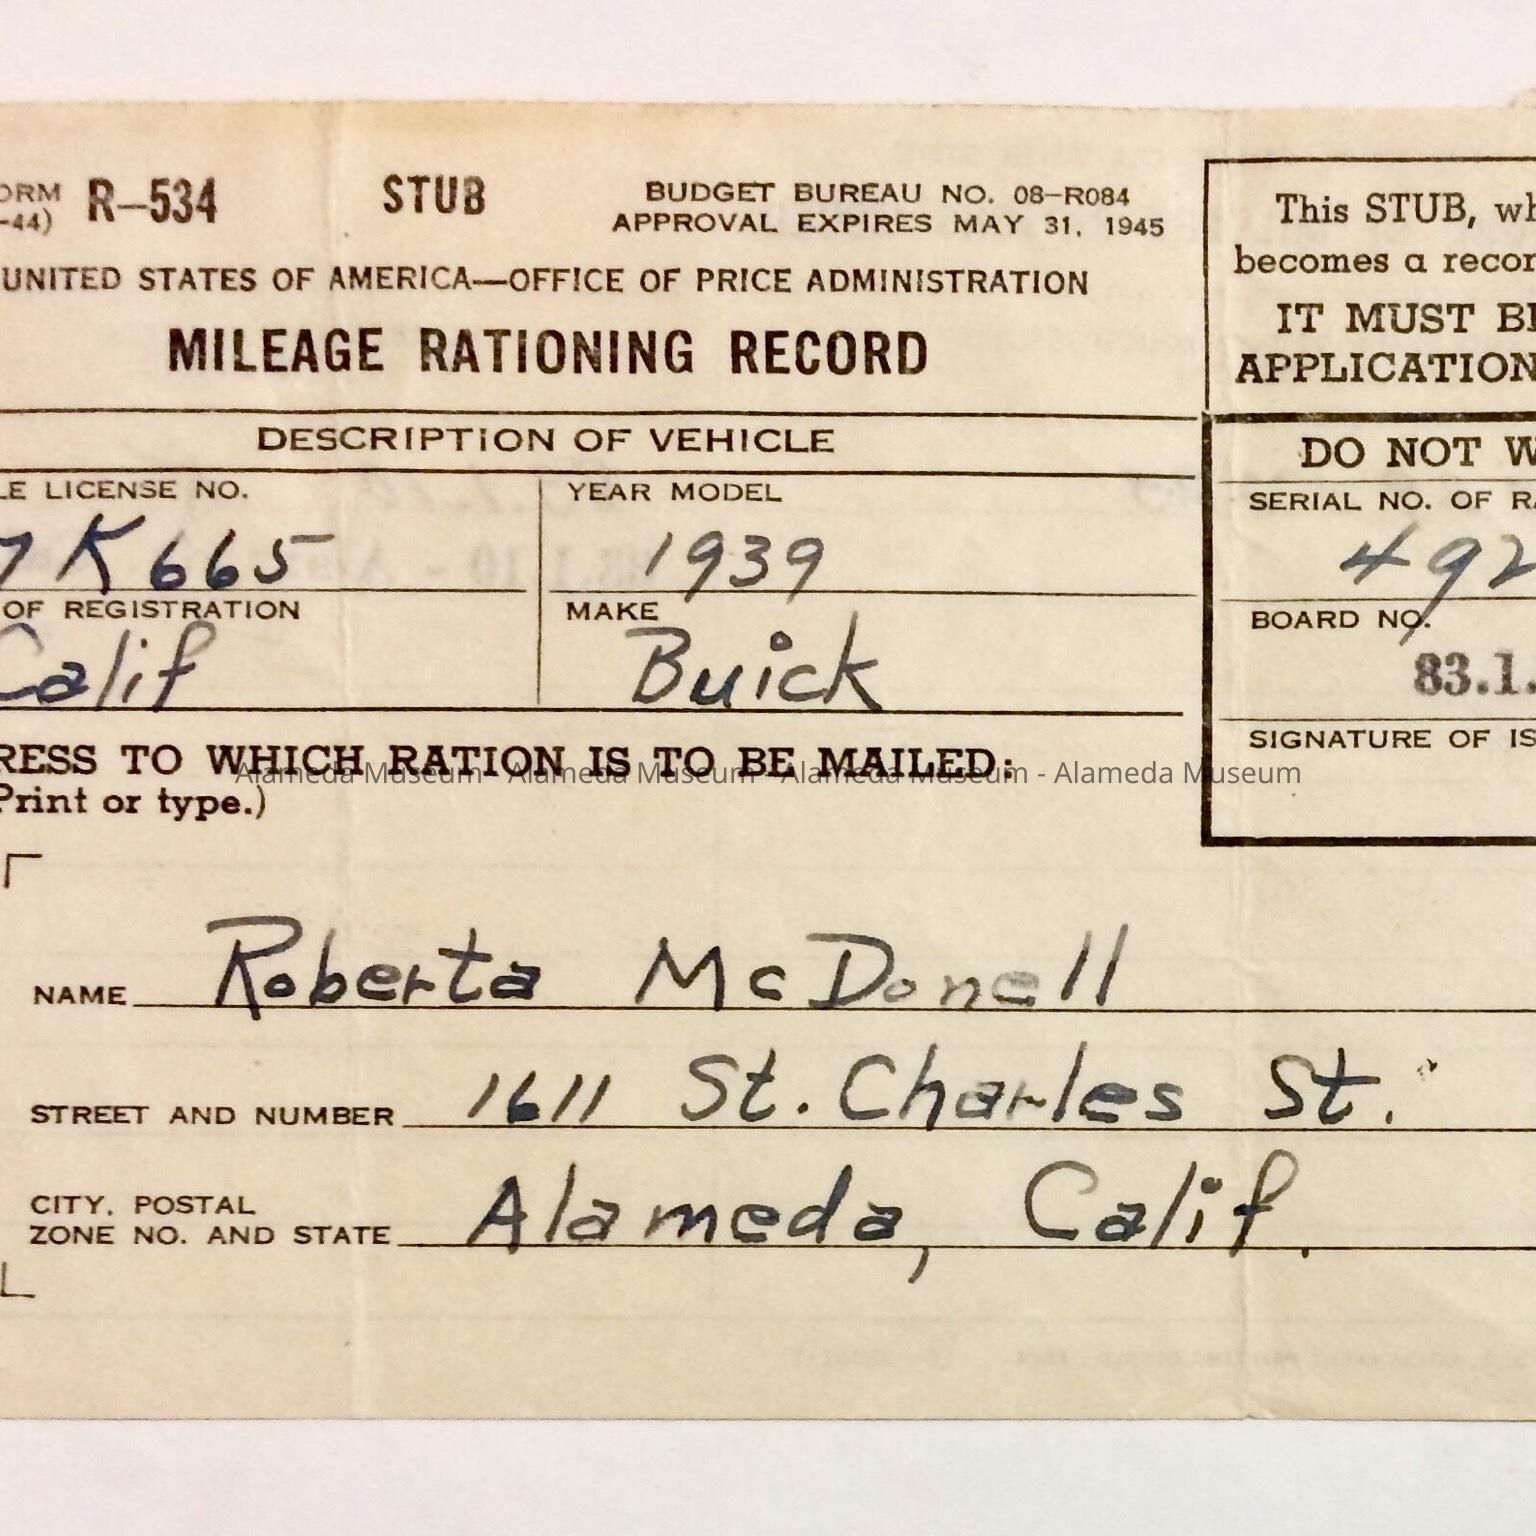 ORM R-534 STUB BUDGET BUREAU NO. 08-R084
-44) APPROVAL EXPIRES MAY 31, 1945
UNITED STATES OF AMERICA—OFFICE OF PRICE ADMINISTRATION
MILEAGE RATIONING RECORD
DESCRIPTION OF VEHICLE
LE LICENSE NO. YEAR MODEL
7 K 665 1939
OF REGISTRATION MAKE
Calif Buick
RESS TO WHICH RATION IS TO BE MAILED:
Print or type.)
NAME Roberta McDonell
STREET AND NUMBER 1611 St. Charles St.
CITY, POSTAL
ZONE NO. AND STATE Alameda, Calif.
This STUB, wh
becomes a recor
IT MUST BE
APPLICATION
DO NOT W
SERIAL NO. OF RA
492
BOARD NO.
83.1.
SIGNATURE OF IS
Alameda Museum - Alameda Museum - Alameda Museum - Alameda Museum